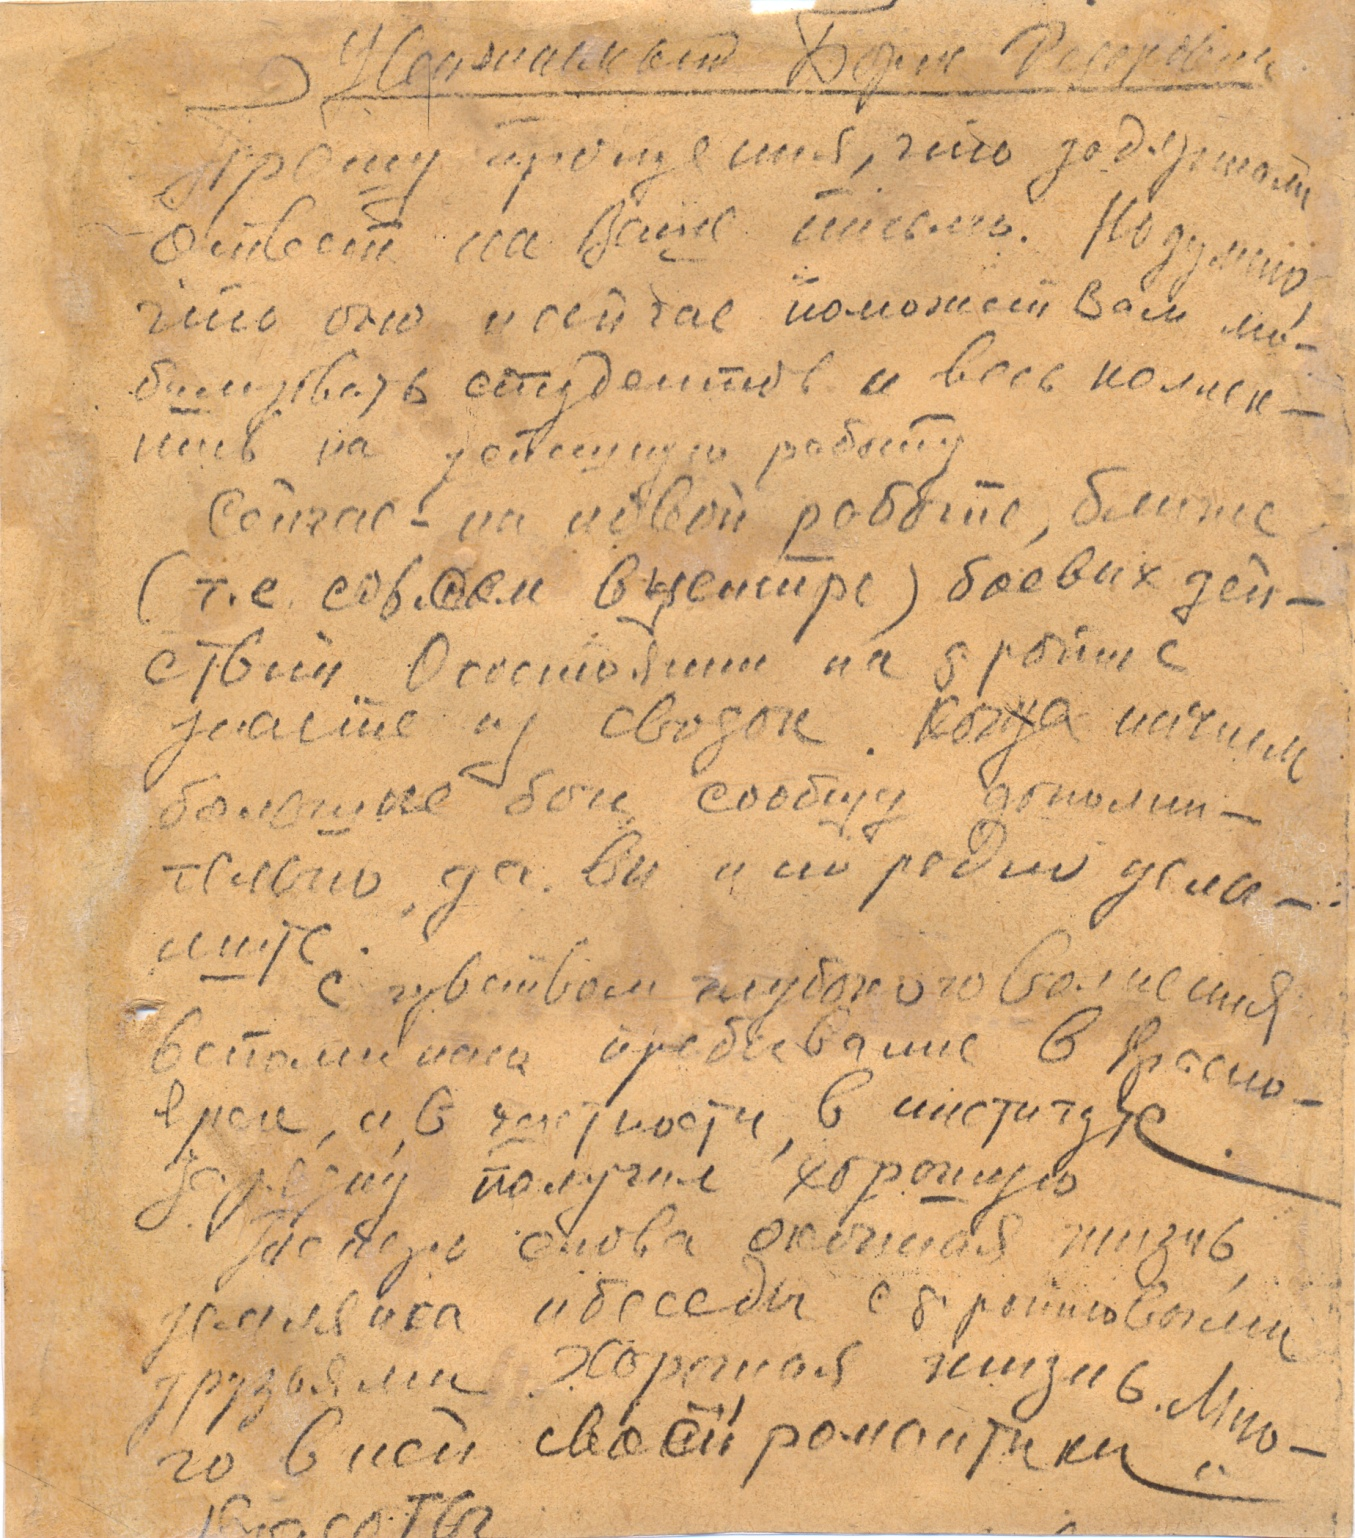 Уважаемый Борис Федорович.
Прошу прощения, что задержал
ответ на Ваше письмо. Но думаю,
что оно и сейчас поможет Вам мо-
билизовать студентов и весь коллек-
тив на успешную работу
Сейчас – на новой работе, ближе
(т.е. совсем в центре) боевых дей-
ствий. О состоянии на фронте
знаете из сводок. Когда начнем
большие бои, сообщу дополни-
тельно, да вы и по радио услы-
шите.
С чувством глубокого волнения
вспоминаю пребывание в Красно-
ярске, и, в частности, в институте.
Зарядку получил хорошую
Теперь снова окопная жизнь,
землянка и беседы с фронтовыми
друзьями. Хорошая жизнь. Мно-
го в ней своей романтики и
красоты